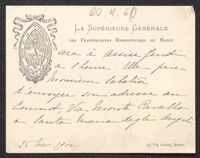 LA SUPÉRIEURE GÉNÉRALE
DES FRANCISCAINES MISSIONNAIRES DE MARIE
sera à Assise lundi
à 1 heure. Elle prie
Monsieur Sabatier
d'envoyer son adresse au
Couvent Via Monte Cavallo
a Santa Maria degli Angeli
25 1900